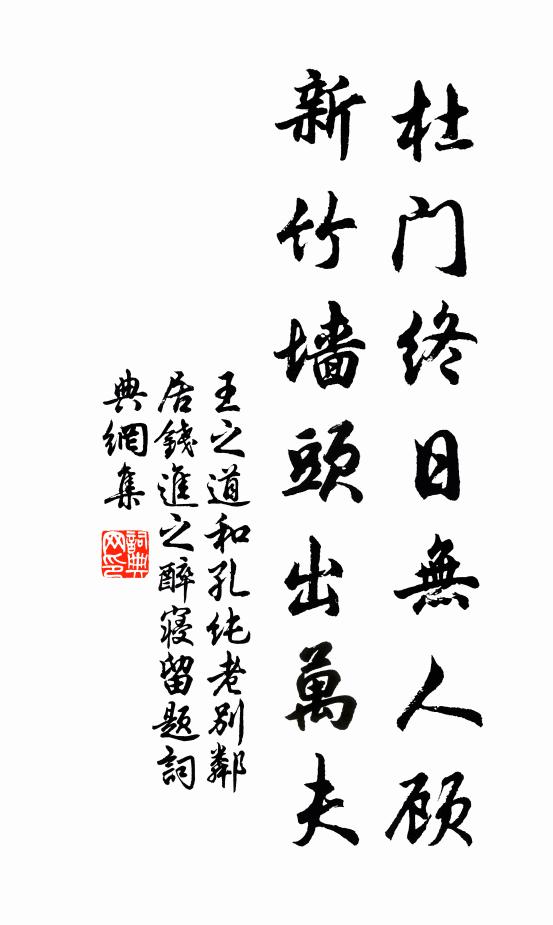 杜门终日無人顾
新竹墙頭出萬夫
王之道和孔纯老别鄰
居錢進之醉寝留题詞
典網集
詞典
网印